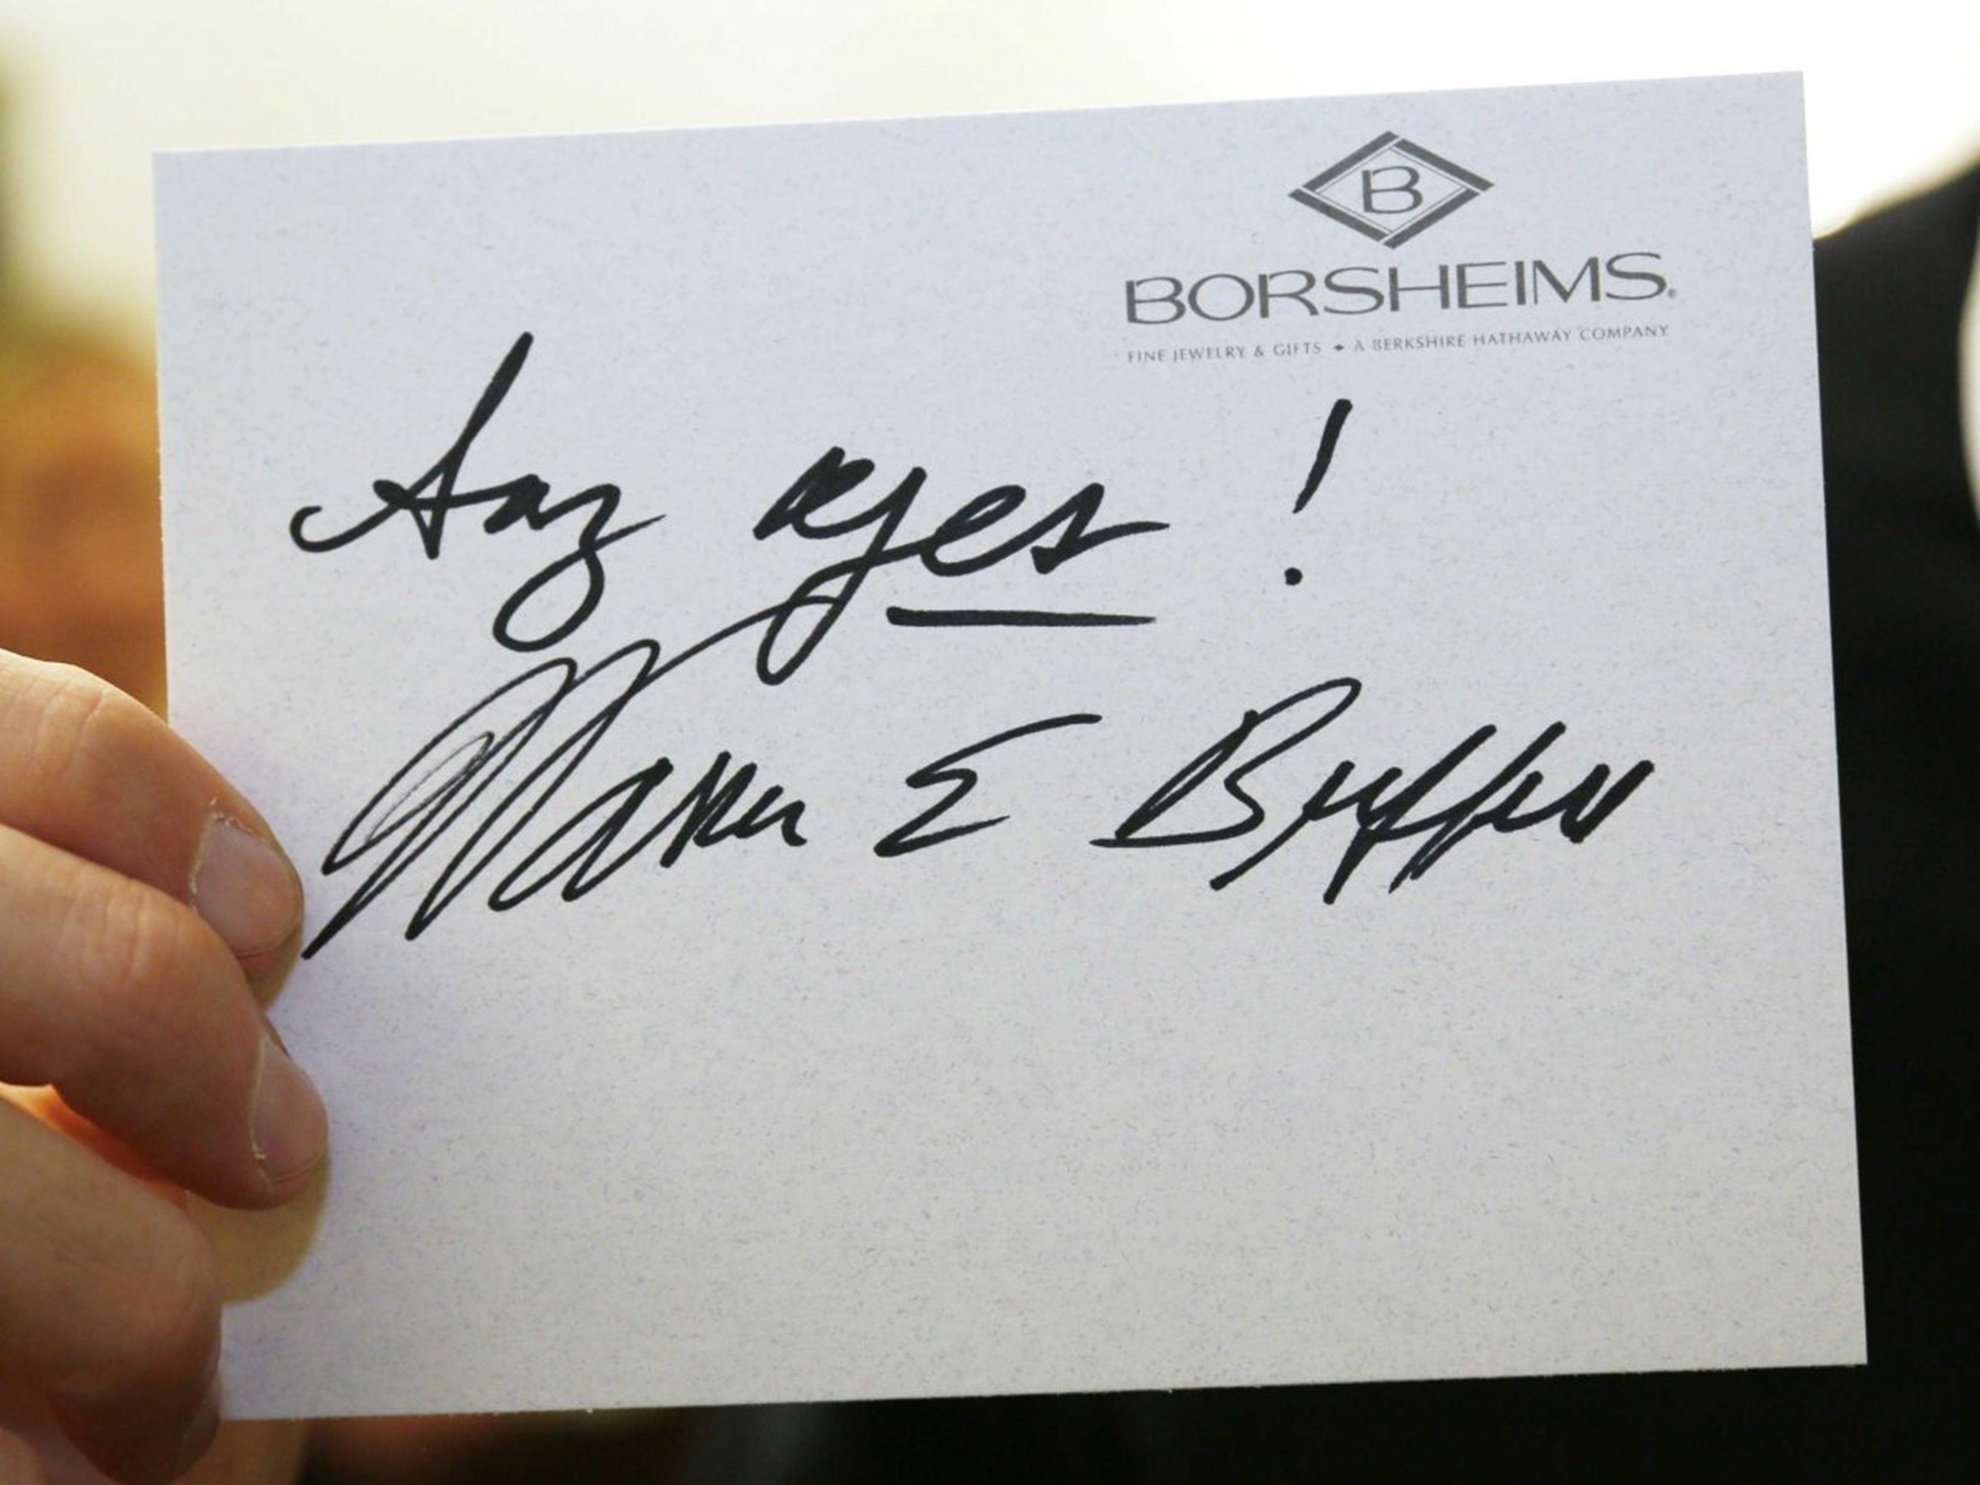 B
BORSHEIMS®
FINE JEWELRY & GIFTS ◆ A BERKSHIRE HATHAWAY COMPANY
Say yes!
Warren E Buffett